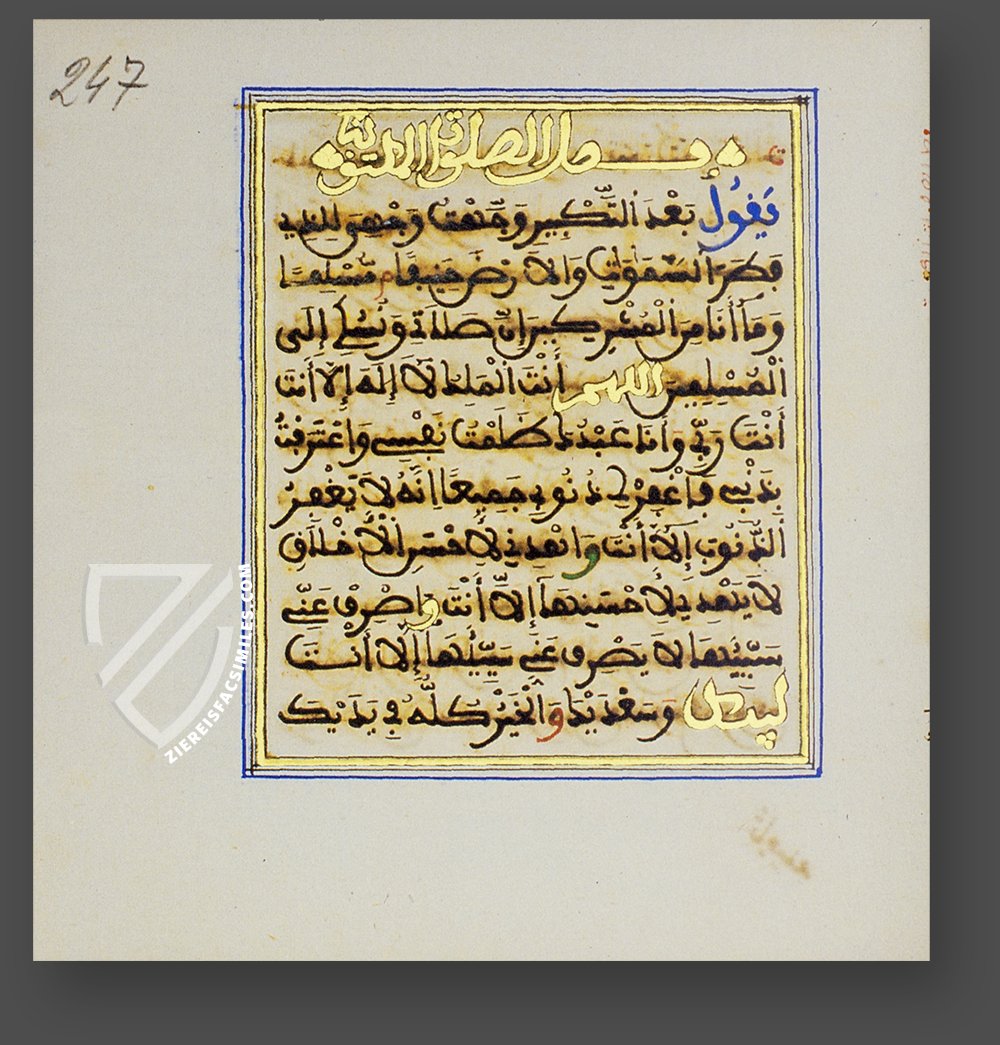 247
الصلوات
يَقُول بَعْدَ التَّكْبِير وَجَّهْتُ وَجْهِيَ لِلَّذِي
فَطَرَ السَّمَوَاتِ وَالأَرْضَ حَنِيفًا مُسْلِمًا
وَمَا أَنَا مِنَ الْمُشْرِكِينَ إِنَّ صَلَاتِي وَنُسُكِي إِلَى
الْمُسْلِمِينَ اللهم أَنْتَ الْمَلِكُ لَا إِلَهَ إِلَّا أَنتَ
أَنْتَ رَبِّي وَأَنَا عَبْدُكَ ظَلَمْتُ نَفْسِي وَاعْتَرَفْتُ
بِذَنْبِي فَاغْفِرْ لِي ذُنُوبِي جَمِيعًا إِنَّهُ لَا يَغْفِرُ
الذُّنُوبَ إِلَّا أَنْتَ وَاهْدِنِي لِأَحْسَنِ الْأَخْلَاقِ
لَا يَهْدِي لِأَحْسَنِهَا إِلَّا أَنْتَ وَاصْرِفْ عَنِّي
سَيِّئَهَا لَا يَصْرِفُ عَنِّي سَيِّئَهَا إِلَّا أَنْتَ
لبيك وَسَعْدَيْكَ وَالْخَيْرُ كُلُّهُ فِي يَدَيْكَ
ZIEREISFACSIMILES.COM